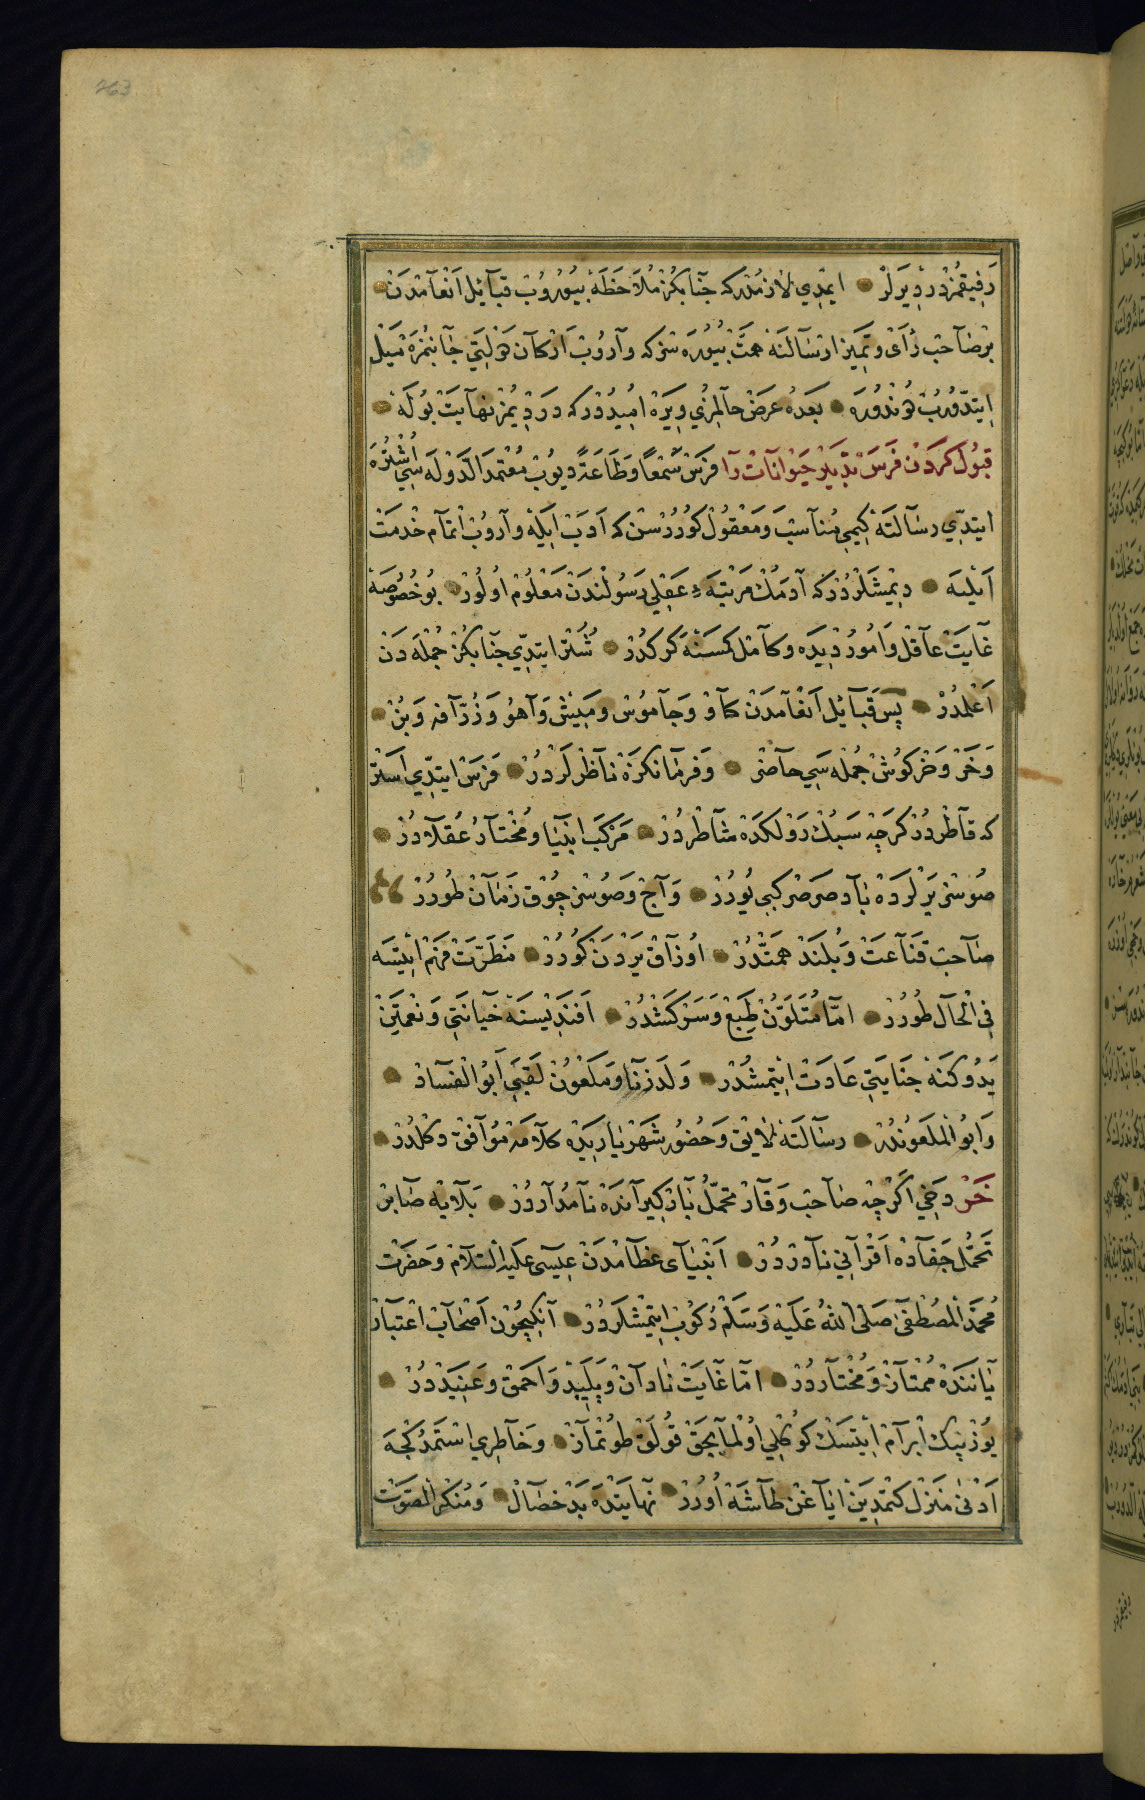 263
رَفِيقُمُزْدُر دِيرَلَرْ ایمْدِي لازمْدركه جنابكُزْ مُلاحَظَهْ بُیُورُوبْ قبآئِل اَنْعَآمْدَنْ
بِرْ صَاحبْ رَأىْ و تمییز ارْسَالنَهْ همَّتْ بُیُورَه سزكه وآرُوبْ اَرْكان دَوْلتِي جانبْمُزَهْ مَیْل
ایتدُّورُبْ دُونْدُورَه بَعْدَهْ عرَضْ حالمِزي ویرَهْ امُیدُدْركه دَرْدِیمُزْ نهایتْ بُولَهْ
قبُول كَرْدَنْ فَرَسْ تدْبیرْ حَیْوانَاتْ رآ فَرَسْ سَمْعًا وَطَاعَةً دیوُبْ مُعْتمدالدَّوْلَه سِي اُشْتُرَه
ایتدِّي رسَالتَهْ كیمي مُنآسبْ وَمَعْقولْ كورُرْسنْ كه اَدَبْ ایلَهْ وآرُوبْ اتمآم خدْمَتْ
اَیْلیَه دیمِشْلَرْدُرْكه آدَمكْ مَرْتَبَهءِ عَقِلي رَسُولنْدَنْ مَعْلوُمْ اوُلوُرْ بُوخُصُوصَهْ
غآیَتْ عآقلْ وَامُورْ دیدَه وكآمْل كمسَنَهْ كَرَكدُرْ شُتُرْ ایتدِّي جنابكُزْ جُمْلَه دَنْ
اَعْلمدُرْ پس قبآئِل اَنْعَآمدَنْ كآوْ وَجآموُسْ ومیشْ وَآهوُ وَزُرآفه وَبُزْ
وَخَرْ وَخَرْكوُشْ جُمْله سِي حآضرْ وَفرمَانكزَهْ نآظرْلَرْدُرْ فَرَسْ ایتدِّي اَسْتَرْ
كه قآطرْدُرْ كَرچه سَبُكْ رَوْ لكدَهْ شآطرْدُرْ مَرْكَبْ انبیَا ومُخْتآر عُقَلآدُرْ
صُوسْزْ یَرْلَرْدَهْ بَادِ صَرصَرْ كبي یوُرُرْ وَآجْ وَصُوسُزْ چوُقْ زَمَآنْ طُورُرْ
صَاحبْ قنَآعتْ وَبُلنْدْ همَّتْدُرْ اوُزَآقْ یَرْدَنْ كورُرْ نَظرَتْ فهَمْ ایتسَه
فِي الْحَآلْ طُورُرْ امّا مُتَلَوّنْ طَبعْ وَسَرْكَشْدُرْ اَفَنْدیْسنَهْ خیَانتِي وَنعْمَتینْ
یَدُوكنَهْ جنَایتِي عَادَتْ ایتمشْدُرْ وَلَدزِنَا وَمَلعُونْ لَقَبي اَبُو الْفسَادْ
وَابُوُ الْمَلعُونْدُرْ رسَالتَهْ لآیقْ وَحُضُورِ شَهْریَاریدَه كلآمَه مُوآفقْ دكلْدُرْ
خَرْ دخِي اَكَرْچه صَاحبْ وَقَارْ تحَمُّلْ بَارْكیرآندَهْ نآمدَآرْدُرْ بَلآیَه صَابرْ
تَحمّلْ جفَآدَهْ اَقْرَآنِي نآدرْدُرْ اَنْبیَاىِ عظَآمْدَنْ عِیسَى علَیْه السَّلآمْ وَحَضرَتْ
مُحمَّدْ الْمُصْطَفَى صَلّى اللّهُ عَلَیْه وَسَلَّمْ رُكُوبْ ایتمشْلَرْدُرْ آنكیچُونْ اَصْحَابْ اعْتبَآرْ
یَاننْدَهْ مُمْتآزْ وَمُخْتآرْدُرْ امّا غآیَتْ نَادَآنْ وپَلیدْ وَاحمَقْ وعَنیدْدُرْ
یوُزْبیك ابْرآمْ ایتْسَكْ كوكْلِي اوُلمَآیجقْ قوُلَقْ طُوتْمآزْ وخَآطرِي استَمَدُكجَه
اَدْنى مَنْزل كتمدینْ ایآغنْ طآشَهْ اوُرُرْ نهآیَتْدَهْ بَدْ خصَالْ وَمُنْكرُ الصَّوْتْ